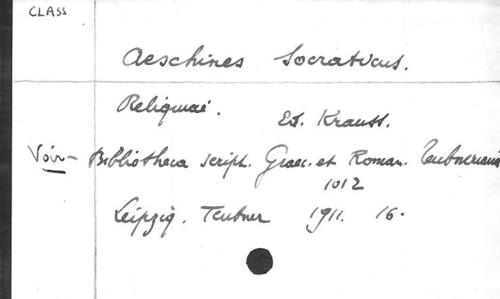 CLASS
Aeschines Socraticus.
Reliquiae.
Ed. Krauss.
Voir - Bibliotheca script. Graec. et Roman. Teubneriana
1012
Leipzig. Teubner 1911. 16.